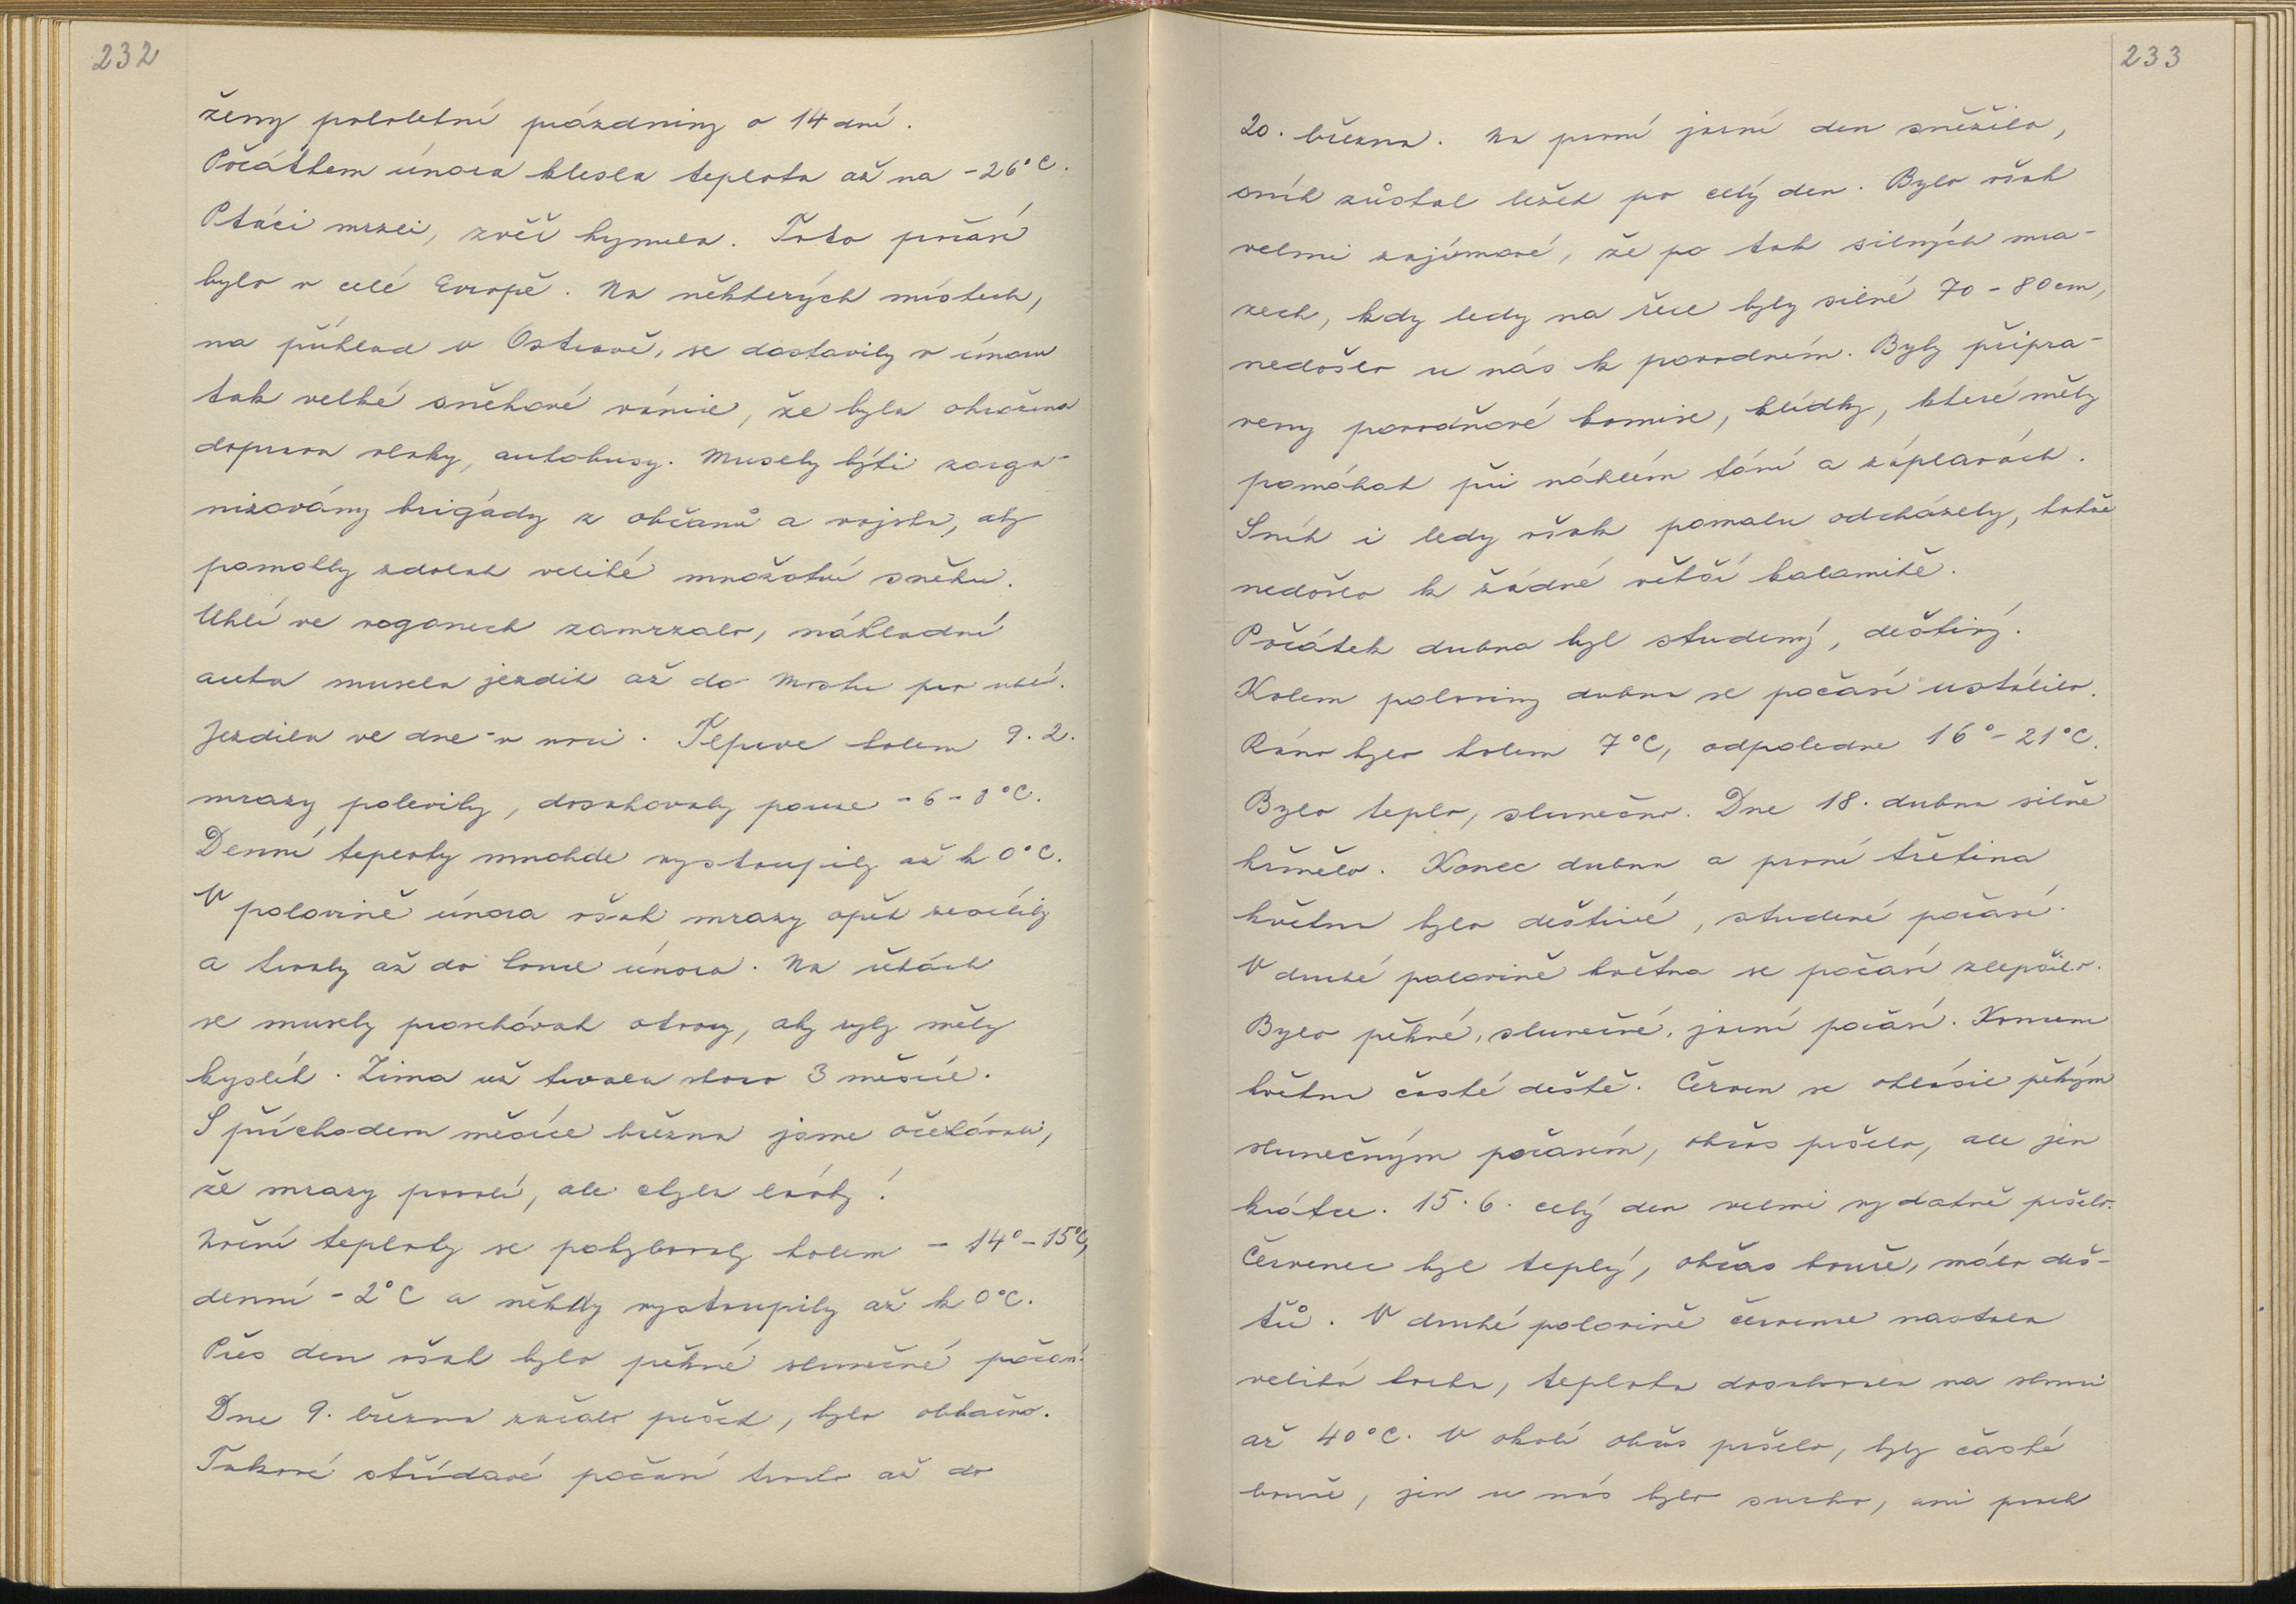 232
ženy pololetní prázdniny o 14 dní.
Počátkem února klesla teplota až na -26°C.
Ptáci mrzli, zvěř hynula. Toto počasí
bylo v celé Evropě. Na některých místech,
na příklad v Ostravě, se dostavily v únoru
tak velké sněhové vánice, že byla ohrožena
doprava vlaky, autobusy. Musely býti zorga-
nizovány brigády z občanů a vojska, aby
pomohly zdolat veliké množství sněhu.
Uhlí ve vagonech zamrzalo, nákladní
auta musela jezdit až do Mostu pro uhlí.
Jezdila ve dne v noci. Teprve kolem 9.2.
mrazy polevily, dosahovaly pouze -6-8°C.
Denní teploty mnohde vystoupily až k 0°C.
V polovině února však mrazy opět zesílily
a trvaly až do konce února. Na řekách
se musely prosekávat otvory, aby ryby měly
kyslík. Zima už trvala skoro 3 měsíce.
S příchodem měsíce března jsme očekávali,
že mrazy povolí, ale chyba lávky!
Noční teploty se pohybovaly kolem -14°-15°C,
denní -2°C a někdy vystoupily až k 0°C.
Přes den však bylo pěkné slunečné počasí.
Dne 9. března začalo pršet, bylo oblačno.
Takové střídavé počasí trvalo až do
233
20. března. Na první jarní den sněžilo,
sníh zůstal ležet po celý den. Bylo však
velmi zajímavé, že po tak silných mra-
zech, kdy ledy na řece byly silné 70-80cm,
nedošlo u nás k povodním. Byly připra-
veny povodňové komise, hlídky, které měly
pomáhat při náhlém tání a záplavách.
Sníh i ledy však pomalu odcházely, takže
nedošlo k žádné větší kalamitě.
Počátek dubna byl studený, deštivý.
Kolem poloviny dubna se počasí ustálilo.
Ráno bylo kolem 7°C, odpoledne 16°-21°C.
Bylo teplo, slunečno. Dne 18. dubna silně
hřmělo. Konec dubna a první třetina
května bylo deštivé, studené počasí.
V druhé polovině května se počasí zlepšilo.
Bylo pěkné, slunečné, jarní počasí. Koncem
května časté deště. Červen se ohlásil pěkným
slunečným počasím, občas pršelo, ale jen
krátce. 15.6. celý den velmi vydatně pršelo.
Červenec byl teplý, občas bouře, málo deš-
ťů. V druhé polovině července nastala
veliká horka, teplota dosahovala na slunci
až 40°C. V okolí občas pršelo, byly časté
bouře, jen u nás bylo sucho, ani prach